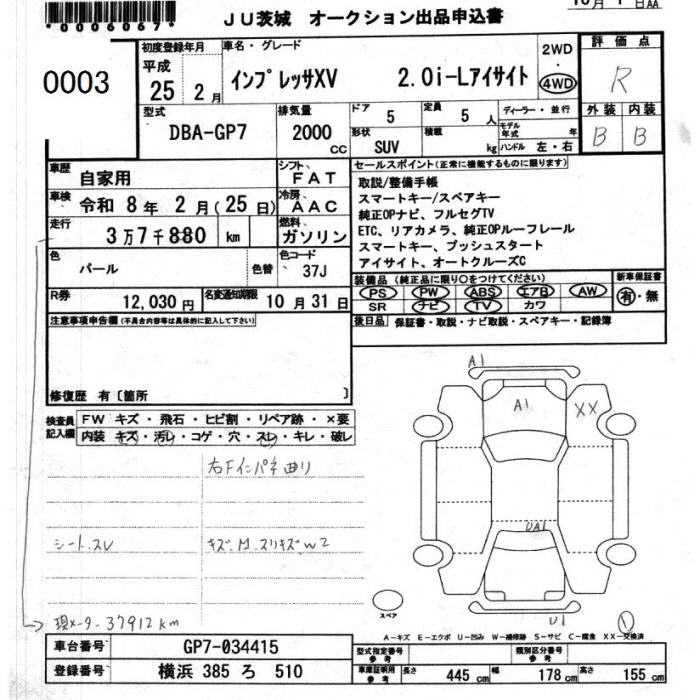 *0006067*
JU茨城 オークション出品申込書
0003
初度登録年月
平成
25 2月
車名・グレード
インプレッサXV 2.0i-Lアイサイト
2WD
・
4WD
評価点
R
外装 内装
B B
型式
DBA-GP7
排気量
2000
CC
ドア
5
定員
5人
形状
SUV
積載
kg
ディーラー・並行
モデル年式 年
ハンドル 左・右
車歴
自家用
シフト、
FAT
車検
令和 8年 2月(25日)
冷房、
AAC
走行
3万7千880 km
燃料、
ガソリン
色
パール
色替
色コード
37J
R券
12,030円
名変通知期限 10月31日
セールスポイント(正常に機能するものに限ります)
取説/整備手帳
スマートキー/スペアキー
純正OPナビ、フルセグTV
ETC、リアカメラ、純正OPルーフレール
スマートキー、プッシュスタート
アイサイト、オートクルーズC
装備品 (純正品に限り○をつけてください)
PS PW ABS エアB AW
SR ナビ TV カワ
新車保証書
有・無
後日品 保証書・取説・ナビ取説・スペアキー・記録簿
注意事項申告欄 (不具合内容等は具体的に記入して下さい)
修復歴 有〔箇所 〕
検査員記入欄
FW キズ・飛石・ヒビ割・リペア跡・×要
内装 キズ・汚レ・コゲ・穴・スレ・キレ・破レ
右Fインパネ曲リ
シート.スレ
キズ.M.スリキズ.W2
現メーター37912km
A1
A1
XX
UA1
U1
1
スペア
A-キズ E-エクボ U-凹み W-補修跡 S-サビ C-腐食 XX-交換済
車台番号 GP7-034415
登録番号 横浜 385 ろ 510
型式指定番号
参考
類別区分番号
参考
車庫証明用
参考
長さ 445cm 幅 178cm 高さ 155cm